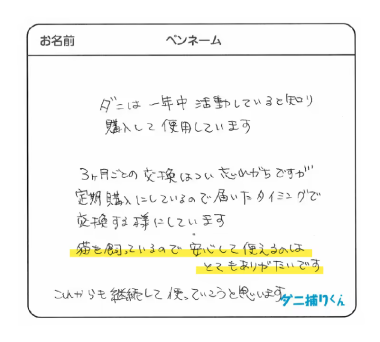 お名前 ペンネーム
ダニは一年中活動していると知り
購入して使用しています
3ヶ月ごとの交換はつい忘れがちですが
定期購入にしているので届いたタイミングで
交換する様にしています
猫を飼っているので安心して使えるのは
とてもありがたいです
これからも継続して使っていこうと思います
ダニ捕りくん